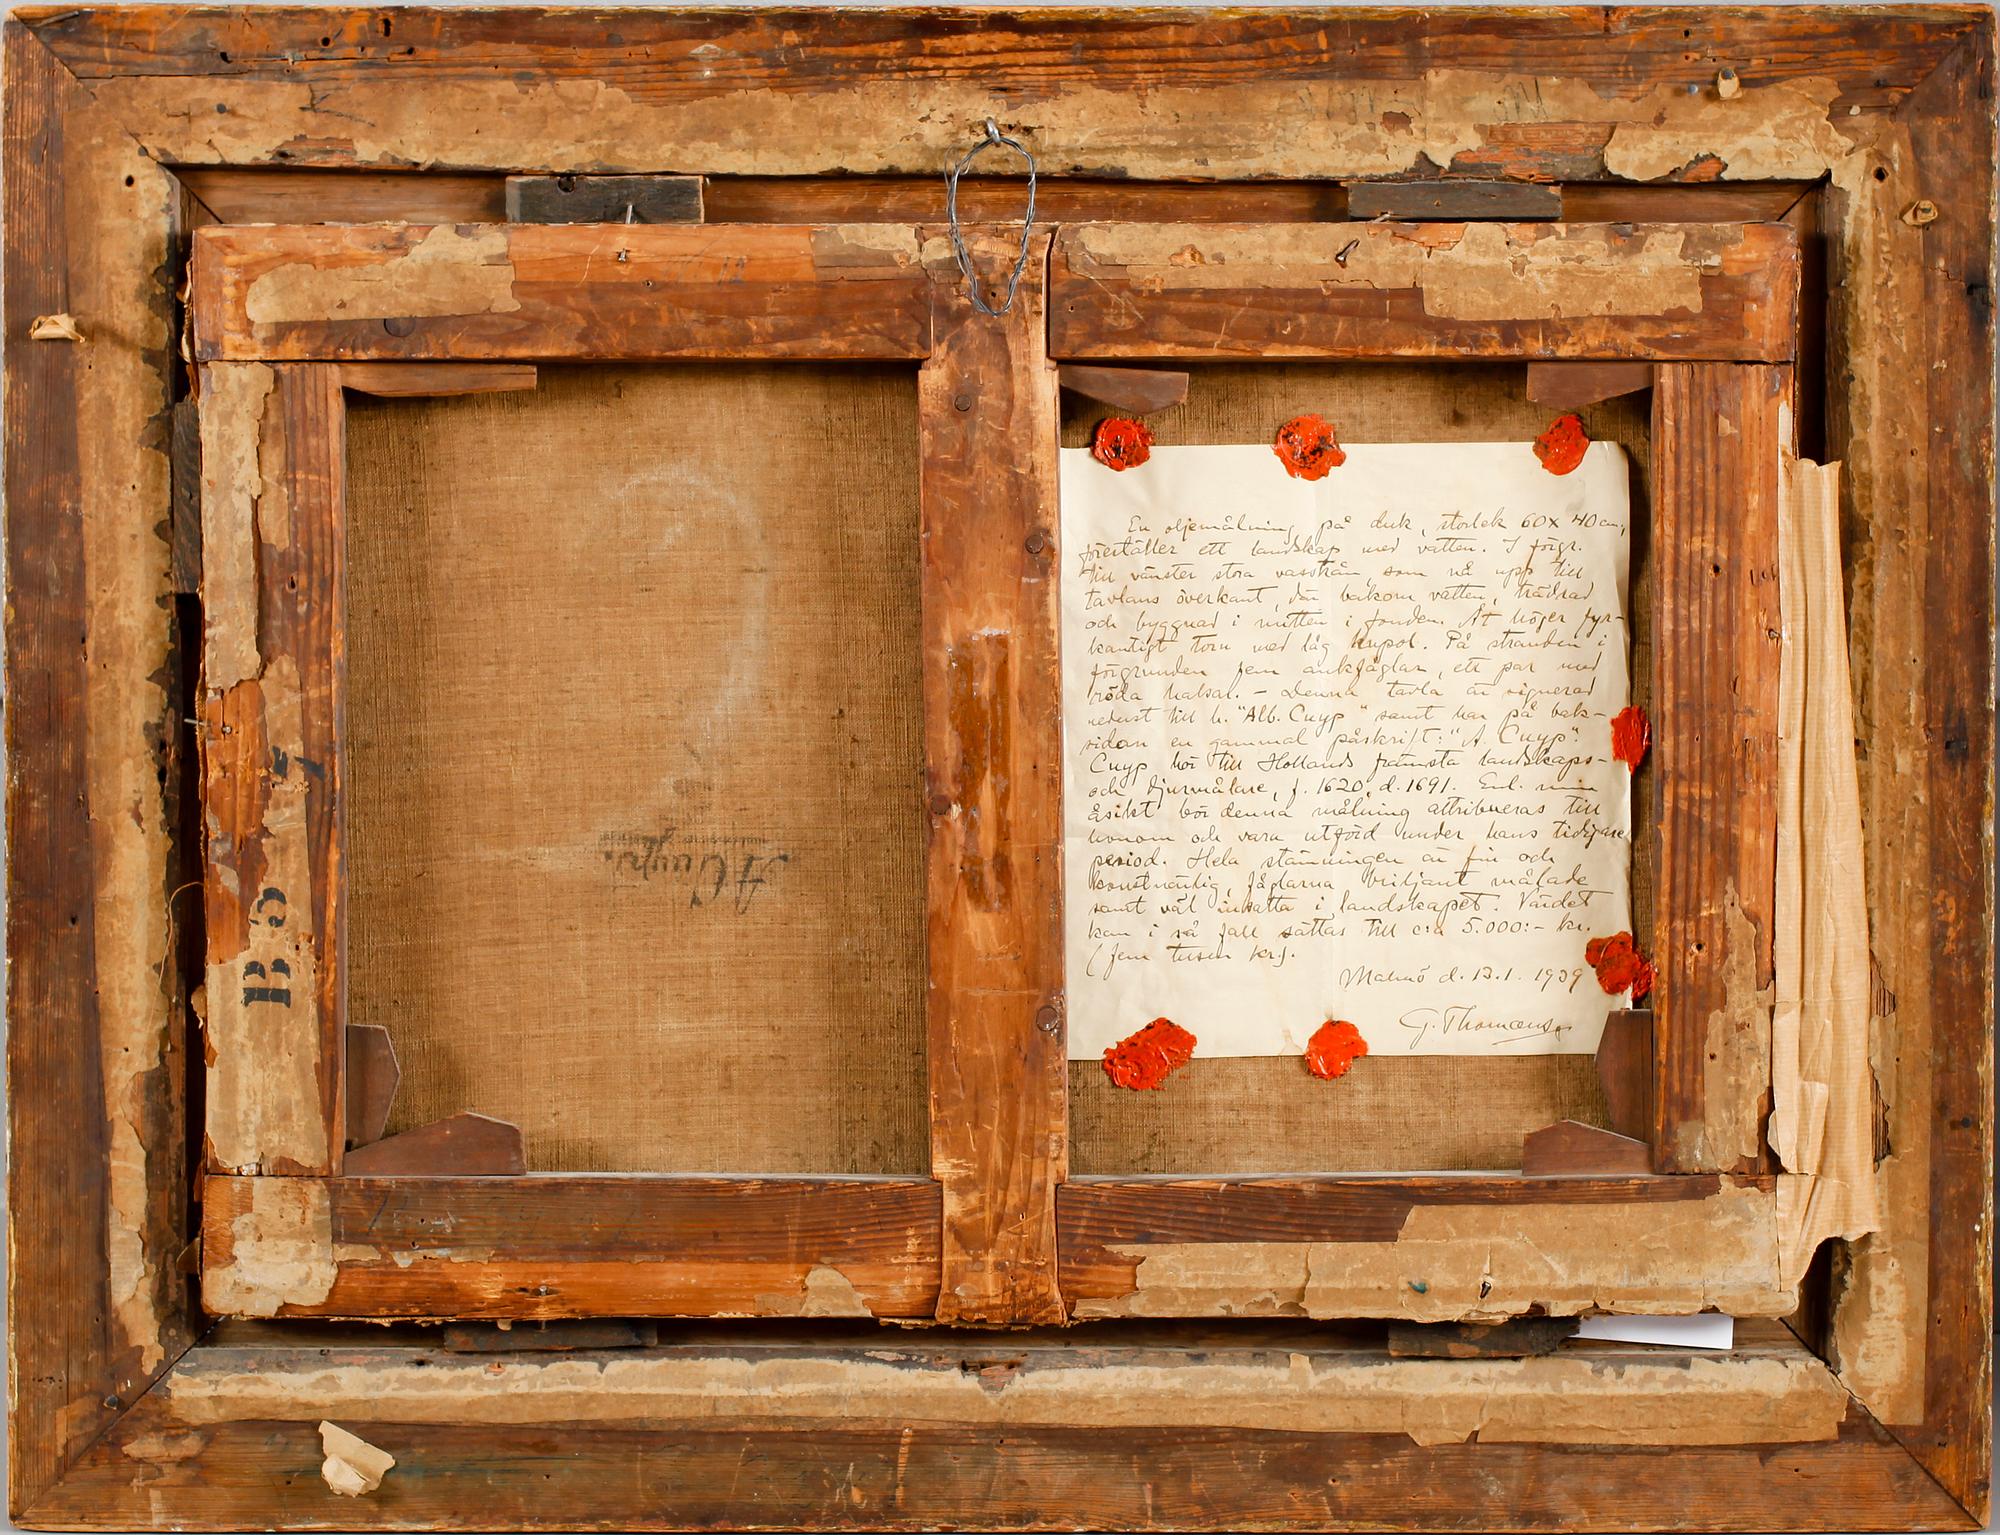 En oljemålning på duk, storlek 60 x 40 cm,
föreställer ett landskap med vatten. I förgr.
till vänster stora vasstrån, som nå upp till
tavlans överkant, där bakom vatten, trädrad
och byggnad i mitten i fonden. Åt höger fyr-
kantigt torn med låg kupol. På stranden i
förgrunden fem ankfåglar, ett par med
röda halsar. – Denna tavla är signerad
nederst till h. "Alb. Cuyp" samt har på bak-
sidan en gammal påskrift: "A Cuyp".
Cuyp hör till Hollands främsta landskaps-
och djurmålare, f. 1620, d. 1691. Enl. min
åsikt bör denna målning attribueras till
honom och vara utförd under hans tidigare
period. Hela stämningen är fin och
konstnärlig, fåglarna briljant målade
samt väl insatta i landskapet. Värdet
kan i så fall sättas till c:a 5.000:– kr.
(fem tusen kr).
Malmö d. 13.1. 1939
G. Thomæus
A Cuyp.
B 5